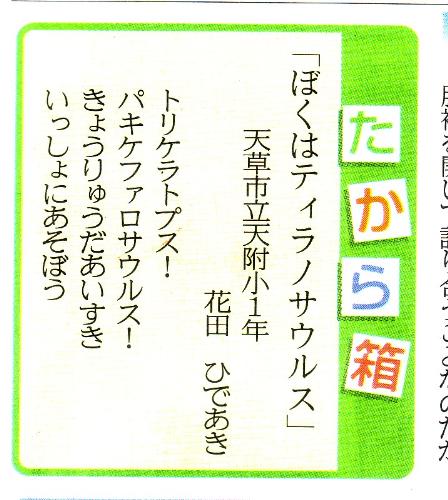 たから箱
「ぼくはティラノサウルス」
天草市立天附小1年
花田 ひであき
トリケラトプス!
パキケファロサウルス!
きょうりゅうだあいすき
いっしょにあそぼう